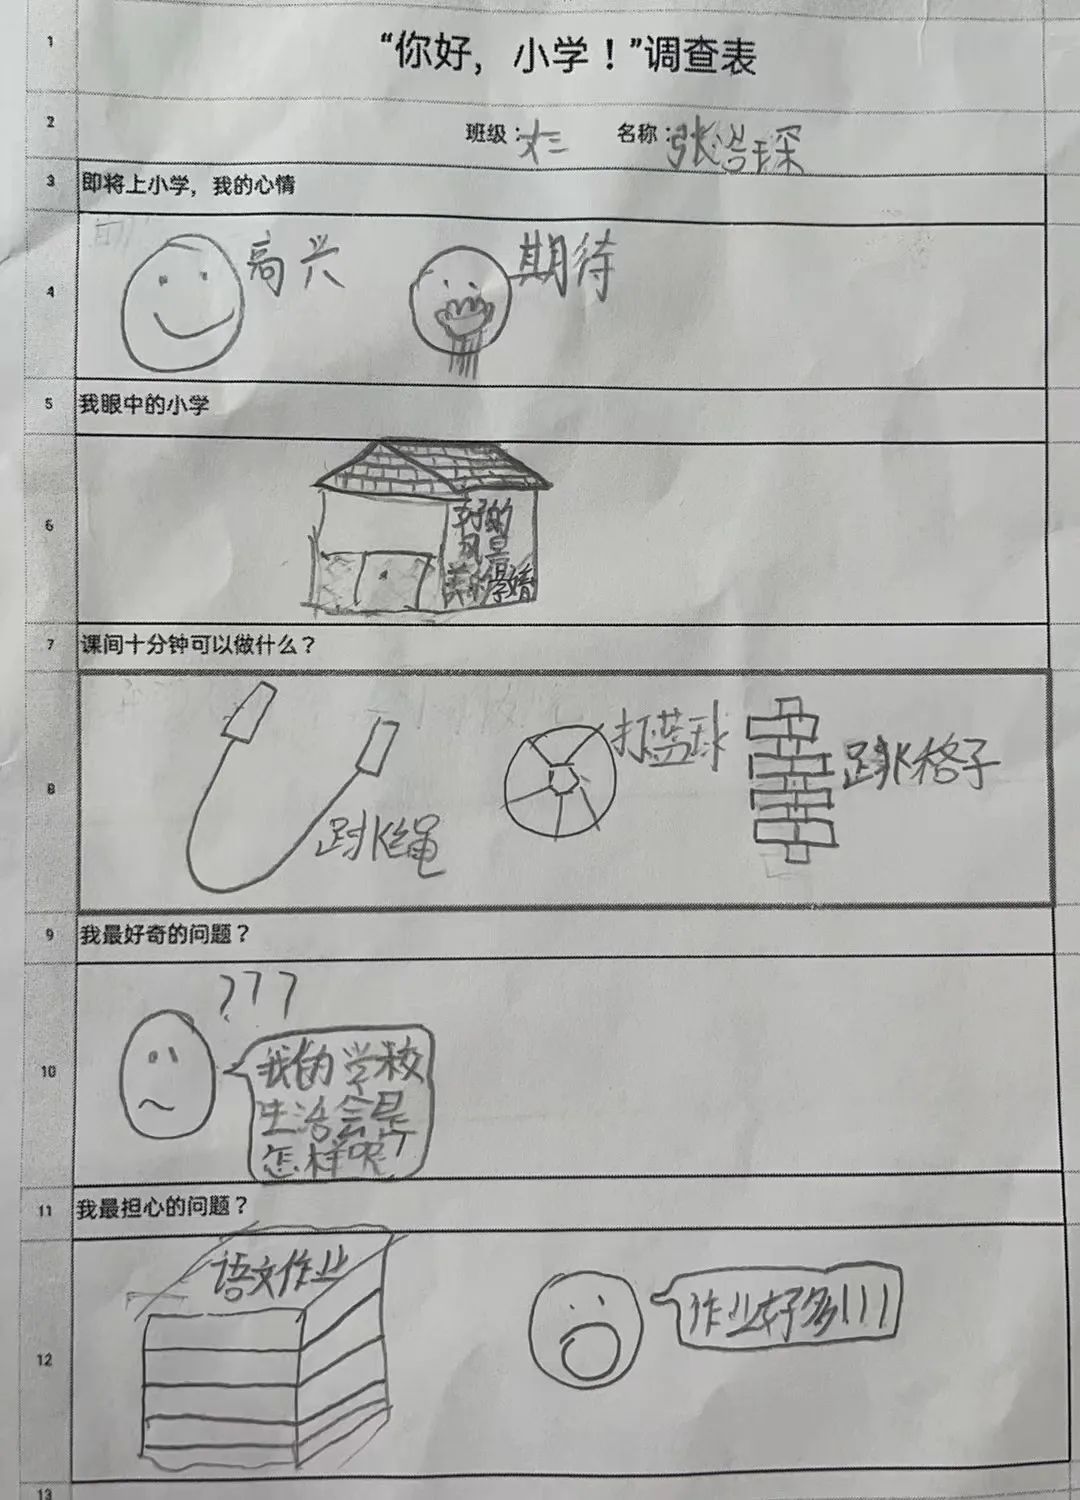 1
“你好，小学！”调查表
2
班级：大三 名称：张浩琛
3
即将上小学，我的心情
4
高兴 期待
5
我眼中的小学
6
好的
风景
美的
7
课间十分钟可以做什么？
8
跳绳 打蓝球 跳格子
9
我最好奇的问题？
10
???
我的学校
生活会是
怎样呢
11
我最担心的问题？
12
语文作业
作业好多!!!
13